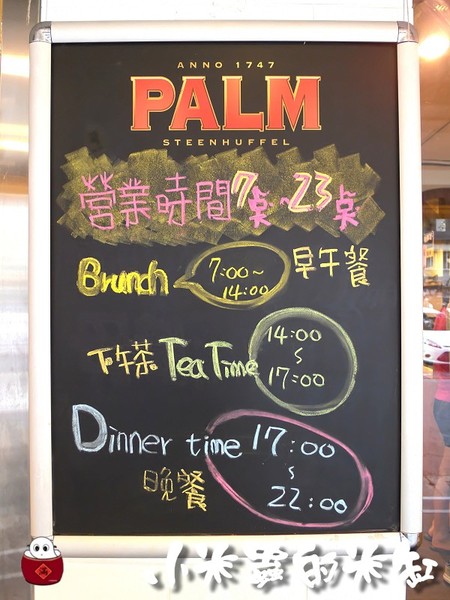 ANNO 1747
PALM
STEENHUFFEL
營業時間7點~23點
Brunch 7:00~14:00 早午餐
下午茶 Tea Time 14:00~17:00
Dinner time 17:00~22:00
晚餐
小米蟲的米缸